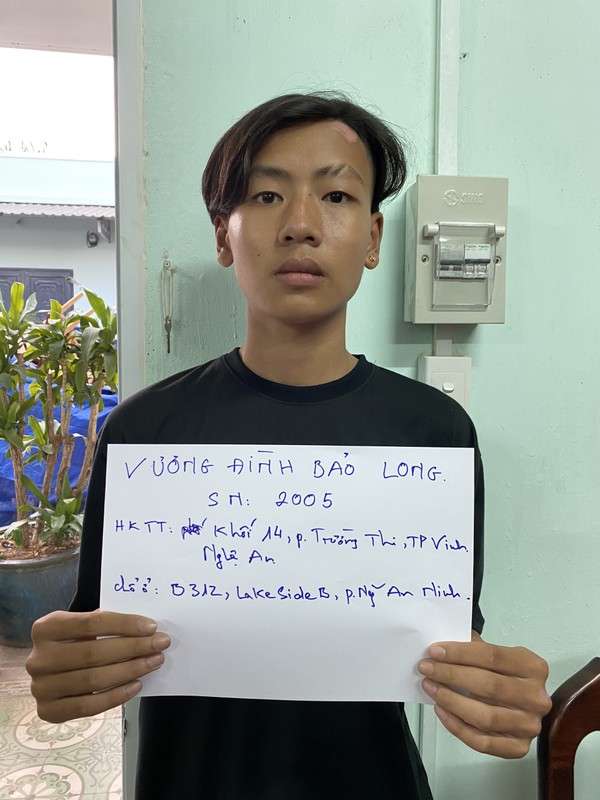 VƯƠNG ĐÌNH BẢO LONG.
SN: 2005
HKTT: Khối 14, p. Trường Thi, TP Vinh
Nghệ An
chỗ ở: B312, LakeSide B, p. Ng An Ninh.
SINO